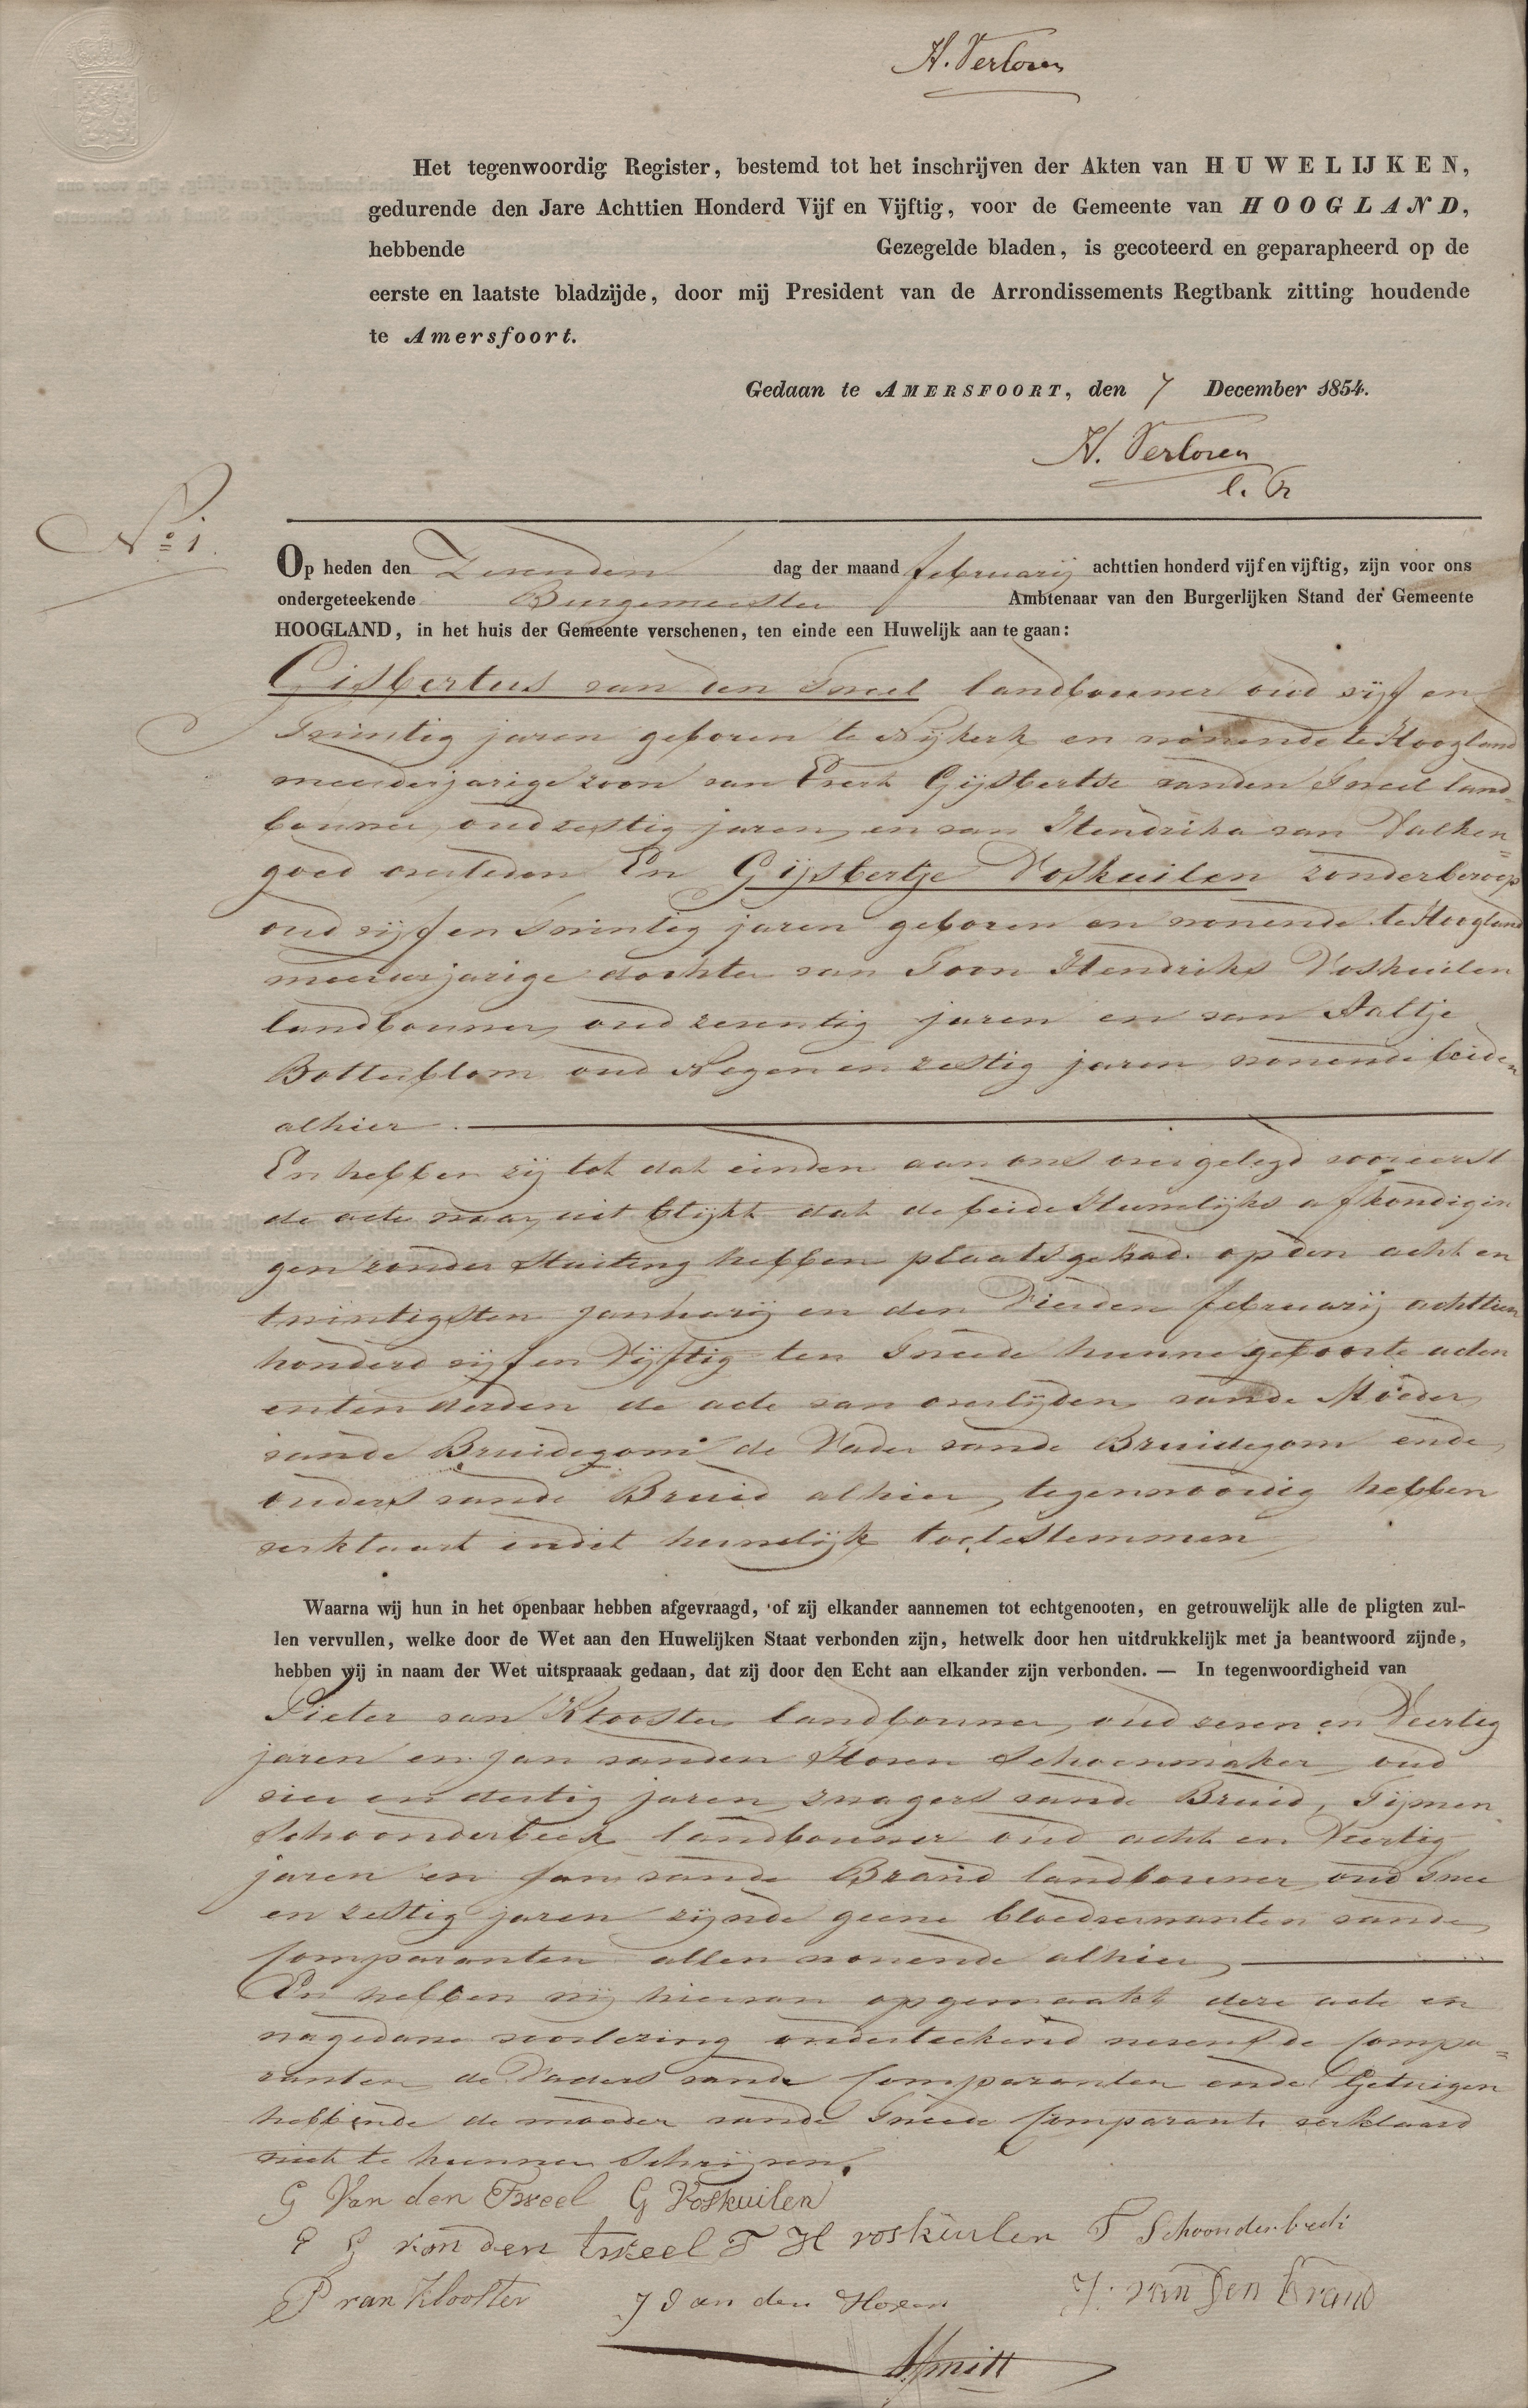 H. Verloren
Het tegenwoordig Register, bestemd tot het inschrijven der Akten van HUWELIJKEN,
gedurende den Jare Achttien Honderd Vijf en Vijftig, voor de Gemeente van HOOGLAND,
hebbende Gezegelde bladen, is gecoteerd en geparapheerd op de
eerste en laatste bladzijde, door mij President van de Arrondissements Regtbank zitting houdende
te Amersfoort.
Gedaan te AMERSFOORT, den 7 December 1854.
H. Verloren
No 1.
Op heden den Zevenden dag der maand februarij achttien honderd vijf en vijftig, zijn voor ons
ondergeteekende Burgemeester Ambtenaar van den Burgerlijken Stand der Gemeente
HOOGLAND, in het huis der Gemeente verschenen, ten einde een Huwelijk aan te gaan:
Gisbertus van den Tweel landbouwer oud vijf en
Twintig jaren geboren te Nijkerk en wonende te Hoogland
meerderjarige zoon van Evert Gijsbertse vanden Tweel land-
bouwer, oud zestig jaren, en van Hendrika van Valken=
goed overleden En Gijsbertje Voskuilen zonder beroep
oud vijf en Twintig jaren geboren en wonende te Hoogland
meerderjarige dochter van Toon Hendriks Voskuilen
landbouwer, oud zeventig jaren en van Aaltje
Botterblom oud Negen en zestig jaren wonende beiden
alhier
En hebben zij tot dat einden aan ons overgelegd vooreerst
de acte waar uit blijkt dat de beide Huwelijks afkondigin
gen zonder Stuiting hebben plaats gehad op den acht en
twintigsten januarij en den Vierden februarij achttien
honderd vijf en Vijftig ten Tweede hunne geboorte acten
enten derden de acte van overlijden vande Moeder
vande Bruidegom de Vader vande Bruidegom ende
ouders vande Bruid alhier tegenwoordig hebben
verklaard indit huwelijk toetestemmen
Waarna wij hun in het openbaar hebben afgevraagd, of zij elkander aannemen tot echtgenooten, en getrouwelijk alle de pligten zul-
len vervullen, welke door de Wet aan den Huwelijken Staat verbonden zijn, hetwelk door hen uitdrukkelijk met ja beantwoord zijnde,
hebben wij in naam der Wet uitspraaak gedaan, dat zij door den Echt aan elkander zijn verbonden. — In tegenwoordigheid van
Pieter van Klooster landbouwer, oud zeven en Veertig
jaren en jan vanden Hoven Schoenmaker, oud
vier en dertig jaren zwagers vande Bruid, Tijmen
Schoonderbeek landbouwer oud acht en Veertig
jaren en jan vande Brand landbouwer, oud Twee
en zestig jaren zijnde geene bloedverwanten vande
Comparanten allen wonende alhier
En hebben wij hiervan opgemaakt deze acte en
nagedane voorlezing onderteekend nevens de Compa=
ranten de Vaders vande Comparanten ende Getuigen
hebbende de moeder vande Tweede Comparante verklaard
niet te kunnen Schrijven.
G Van den Tweel G Voskuilen
E G van den tweel T H voskuilen T Schoonderbeek
P van Klooster J van den Hoven J. van den Brand
Smitt